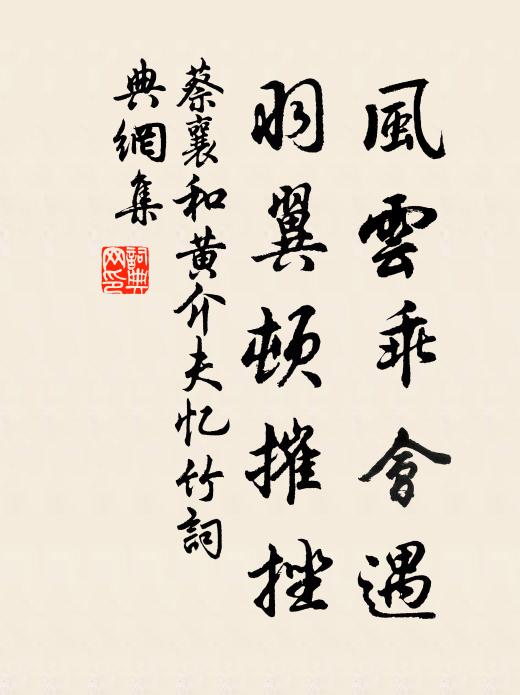 風雲乖會遇
羽翼頓摧挫
蔡襄和黄介夫忆竹詞
典網集
詞典網印